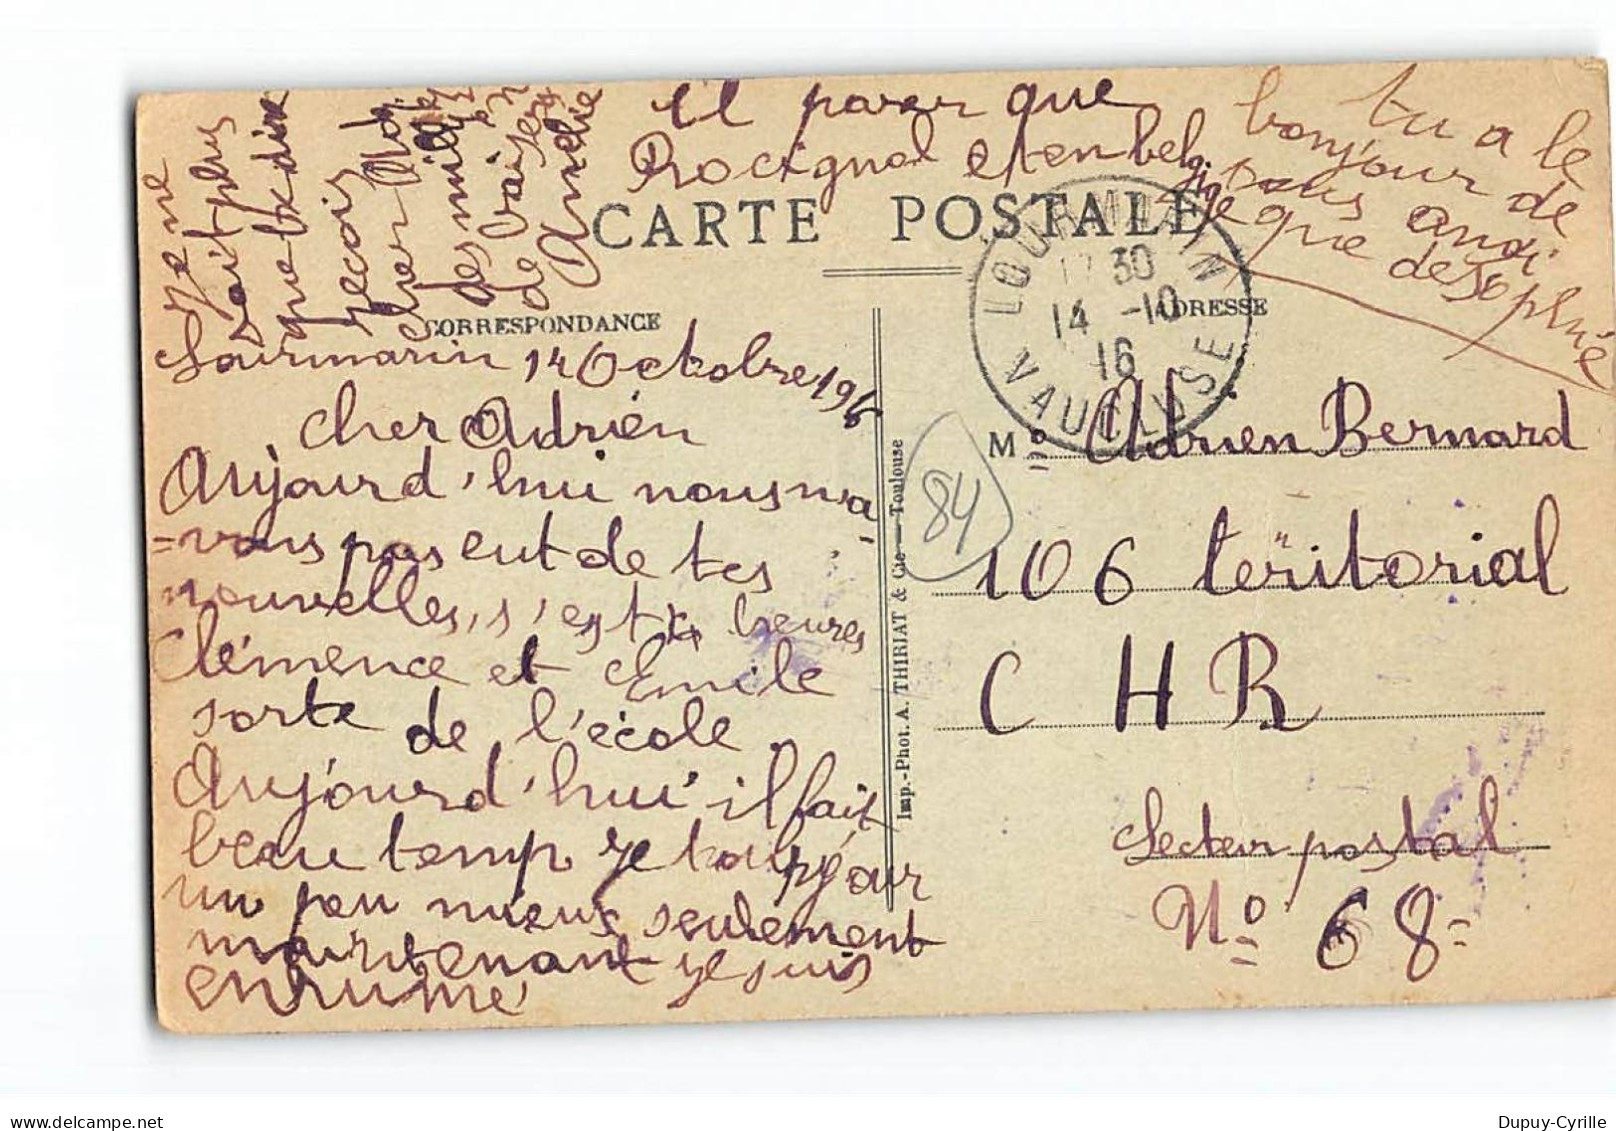 Il parer que
Rocignol et en belgique
tu a le
bonjour de
sous ausi
que de sophie
Je ne
sait plus
que te dire
recois
cher Adr
des mille
de baisers
Amelie
CARTE POSTALE
CORRESPONDANCE
ADRESSE
LOURMARIN
17 30
14 -10
16
VAUCLUSE
Lourmarin 14 Octobre 1916
cher Adrien
Aujourd'hui nous n'a
=vons pas eut de tes
nouvelles, s'est heures
Clémence et Emile
sorte de l'école.
Aujourd'hui il fait
beau temp je
un peu mieux seulement
maintenant je suis
enrumé
Imp.-Phot. A. THIRIAT & Cie — Toulouse
84
Mr Adrien Bernard
106 teritorial
C H R
Secteur postal
No 68=
Dupuy-Cyrille